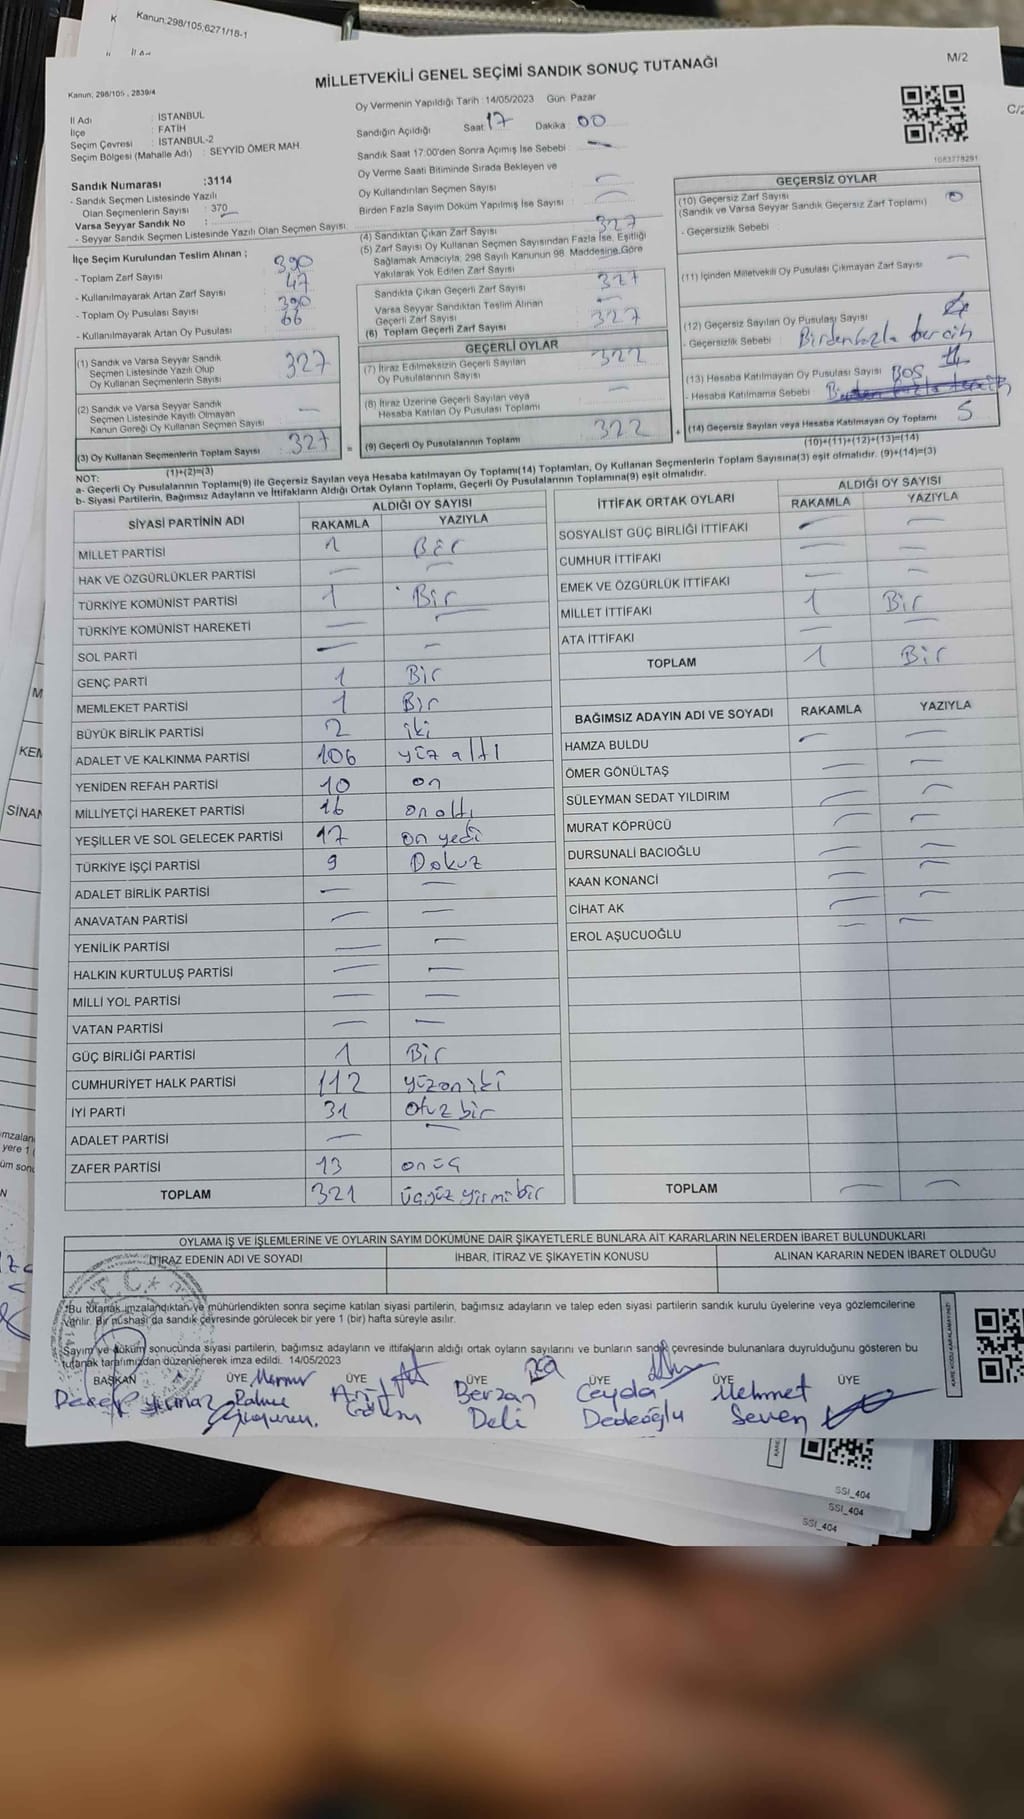 Kanun:298/105;6271/18-1
Kanun: 298/105 , 2839/4
MİLLETVEKİLİ GENEL SEÇİMİ SANDIK SONUÇ TUTANAĞI
M/2
İl Adı : İSTANBUL
İlçe : FATİH
Seçim Çevresi : İSTANBUL-2
Seçim Bölgesi (Mahalle Adı) : SEYYİD ÖMER MAH.
Sandık Numarası :3114
- Sandık Seçmen Listesinde Yazılı
Olan Seçmenlerin Sayısı : 370
Varsa Seyyar Sandık No :
- Seyyar Sandık Seçmen Listesinde Yazılı Olan Seçmen Sayısı
İlçe Seçim Kurulundan Teslim Alınan ;
- Toplam Zarf Sayısı : 390
- Kullanılmayarak Artan Zarf Sayısı : 47
- Toplam Oy Pusulası Sayısı : 390
- Kullanılmayarak Artan Oy Pusulası : 66
(1) Sandık ve Varsa Seyyar Sandık
Seçmen Listesinde Yazılı Olup
Oy Kullanan Seçmenlerin Sayısı 327
(2) Sandık ve Varsa Seyyar Sandık
Seçmen Listesinde Kayıtlı Olmayan
Kanun Gereği Oy Kullanan Seçmen Sayısı —
(3) Oy Kullanan Seçmenlerin Toplam Sayısı : 327
(1)+(2)=(3)
Oy Vermenin Yapıldığı Tarih : 14/05/2023 Gün: Pazar
Sandığın Açıldığı Saat: 17 Dakika : 00
Sandık Saat 17:00'den Sonra Açımış İse Sebebi : —
Oy Verme Saati Bitiminde Sırada Bekleyen ve
Oy Kullandırılan Seçmen Sayısı : —
Birden Fazla Sayım Döküm Yapılmış İse Sayısı : —
(4) Sandıktan Çıkan Zarf Sayısı : 327
(5) Zarf Sayısı Oy Kullanan Seçmen Sayısından Fazla İse, Eşitliği
Sağlamak Amacıyla: 298 Sayılı Kanunun 98. Maddesine Göre
Yakılarak Yok Edilen Zarf Sayısı
Sandıkta Çıkan Geçerli Zarf Sayısı : 327
Varsa Seyyar Sandıktan Teslim Alınan
Geçerli Zarf Sayısı : —
(6) Toplam Geçerli Zarf Sayısı : 327
GEÇERLİ OYLAR
(7) İtiraz Edilmeksizin Geçerli Sayılan
Oy Pusulalarının Sayısı : 322
(8) İtiraz Üzerine Geçerli Sayılan veya
Hesaba Katılan Oy Pusulası Toplamı : —
= (9) Geçerli Oy Pusulalarının Toplamı : 322
1083778291
GEÇERSİZ OYLAR
(10) Geçersiz Zarf Sayısı : 0
(Sandık ve Varsa Seyyar Sandık Geçersiz Zarf Toplamı)
- Geçersizlik Sebebi :
(11) İçinden Milletvekili Oy Pusulası Çıkmayan Zarf Sayısı : —
(12) Geçersiz Sayılan Oy Pusulası Sayısı :
- Geçersizlik Sebebi : Birden fazla tercih
(13) Hesaba Katılmayan Oy Pusulası Sayısı : BOŞ
- Hesaba Katılmama Sebebi :
+ (14) Geçersiz Sayılan veya Hesaba Katılmayan Oy Toplamı : 5
(10)+(11)+(12)+(13)=(14)
NOT:
a- Geçerli Oy Pusulalarının Toplamı(9) ile Geçersiz Sayılan veya Hesaba katılmayan Oy Toplamı(14) Toplamları, Oy Kullanan Seçmenlerin Toplam Sayısına(3) eşit olmalıdır. (9)+(14)=(3)
b- Siyasi Partilerin, Bağımsız Adayların ve İttifakların Aldığı Ortak Oyların Toplamı, Geçerli Oy Pusulalarının Toplamına(9) eşit olmalıdır.
SİYASİ PARTİNİN ADI ALDIĞI OY SAYISI
RAKAMLA YAZIYLA
MİLLET PARTİSİ 1 Bir
HAK VE ÖZGÜRLÜKLER PARTİSİ — —
TÜRKİYE KOMÜNİST PARTİSİ 1 Bir
TÜRKİYE KOMÜNİST HAREKETİ — —
SOL PARTİ — —
GENÇ PARTİ 1 Bir
MEMLEKET PARTİSİ 1 Bir
BÜYÜK BİRLİK PARTİSİ 2 iki
ADALET VE KALKINMA PARTİSİ 106 yüz altı
YENİDEN REFAH PARTİSİ 10 on
MİLLİYETÇİ HAREKET PARTİSİ 16 on altı
YEŞİLLER VE SOL GELECEK PARTİSİ 17 on yedi
TÜRKİYE İŞÇİ PARTİSİ 9 Dokuz
ADALET BİRLİK PARTİSİ — —
ANAVATAN PARTİSİ — —
YENİLİK PARTİSİ — —
HALKIN KURTULUŞ PARTİSİ — —
MİLLİ YOL PARTİSİ — —
VATAN PARTİSİ — —
GÜÇ BİRLİĞİ PARTİSİ 1 Bir
CUMHURİYET HALK PARTİSİ 112 yüz on iki
İYİ PARTİ 31 otuz bir
ADALET PARTİSİ — —
ZAFER PARTİSİ 13 on üç
TOPLAM 321 üçyüz yirmi bir
İTTİFAK ORTAK OYLARI ALDIĞI OY SAYISI
RAKAMLA YAZIYLA
SOSYALİST GÜÇ BİRLİĞİ İTTİFAKI — —
CUMHUR İTTİFAKI — —
EMEK VE ÖZGÜRLÜK İTTİFAKI — —
MİLLET İTTİFAKI 1 Bir
ATA İTTİFAKI — —
TOPLAM 1 Bir
BAĞIMSIZ ADAYIN ADI VE SOYADI RAKAMLA YAZIYLA
HAMZA BULDU — —
ÖMER GÖNÜLTAŞ — —
SÜLEYMAN SEDAT YILDIRIM — —
MURAT KÖPRÜCÜ — —
DURSUNALİ BACIOĞLU — —
KAAN KONANCİ — —
CİHAT AK — —
EROL AŞUCUOĞLU — —
TOPLAM — —
OYLAMA İŞ VE İŞLEMLERİNE VE OYLARIN SAYIM DÖKÜMÜNE DAİR ŞİKAYETLERLE BUNLARA AİT KARARLARIN NELERDEN İBARET BULUNDUKLARI
İTİRAZ EDENİN ADI VE SOYADI İHBAR, İTİRAZ VE ŞİKAYETİN KONUSU ALINAN KARARIN NEDEN İBARET OLDUĞU
*Bu tutanak imzalandıktan ve mühürlendikten sonra seçime katılan siyasi partilerin, bağımsız adayların ve talep eden siyasi partilerin sandık kurulu üyelerine veya gözlemcilerine
verilir. Bir nüshası da sandık çevresinde görülecek bir yere 1 (bir) hafta süreyle asılır.
Sayım ve döküm sonucunda siyasi partilerin, bağımsız adayların ve ittifakların aldığı ortak oyların sayılarını ve bunların sandık çevresinde bulunanlara duyrulduğunu gösteren bu
tutanak tarafımızdan düzenlenerek imza edildi. 14/05/2023
BAŞKAN ÜYE ÜYE ÜYE ÜYE ÜYE ÜYE
Berzan Ceyda Mehmet
Deli Dedeoğlu Seven
SSİ_404
SSİ_404
SSİ_404